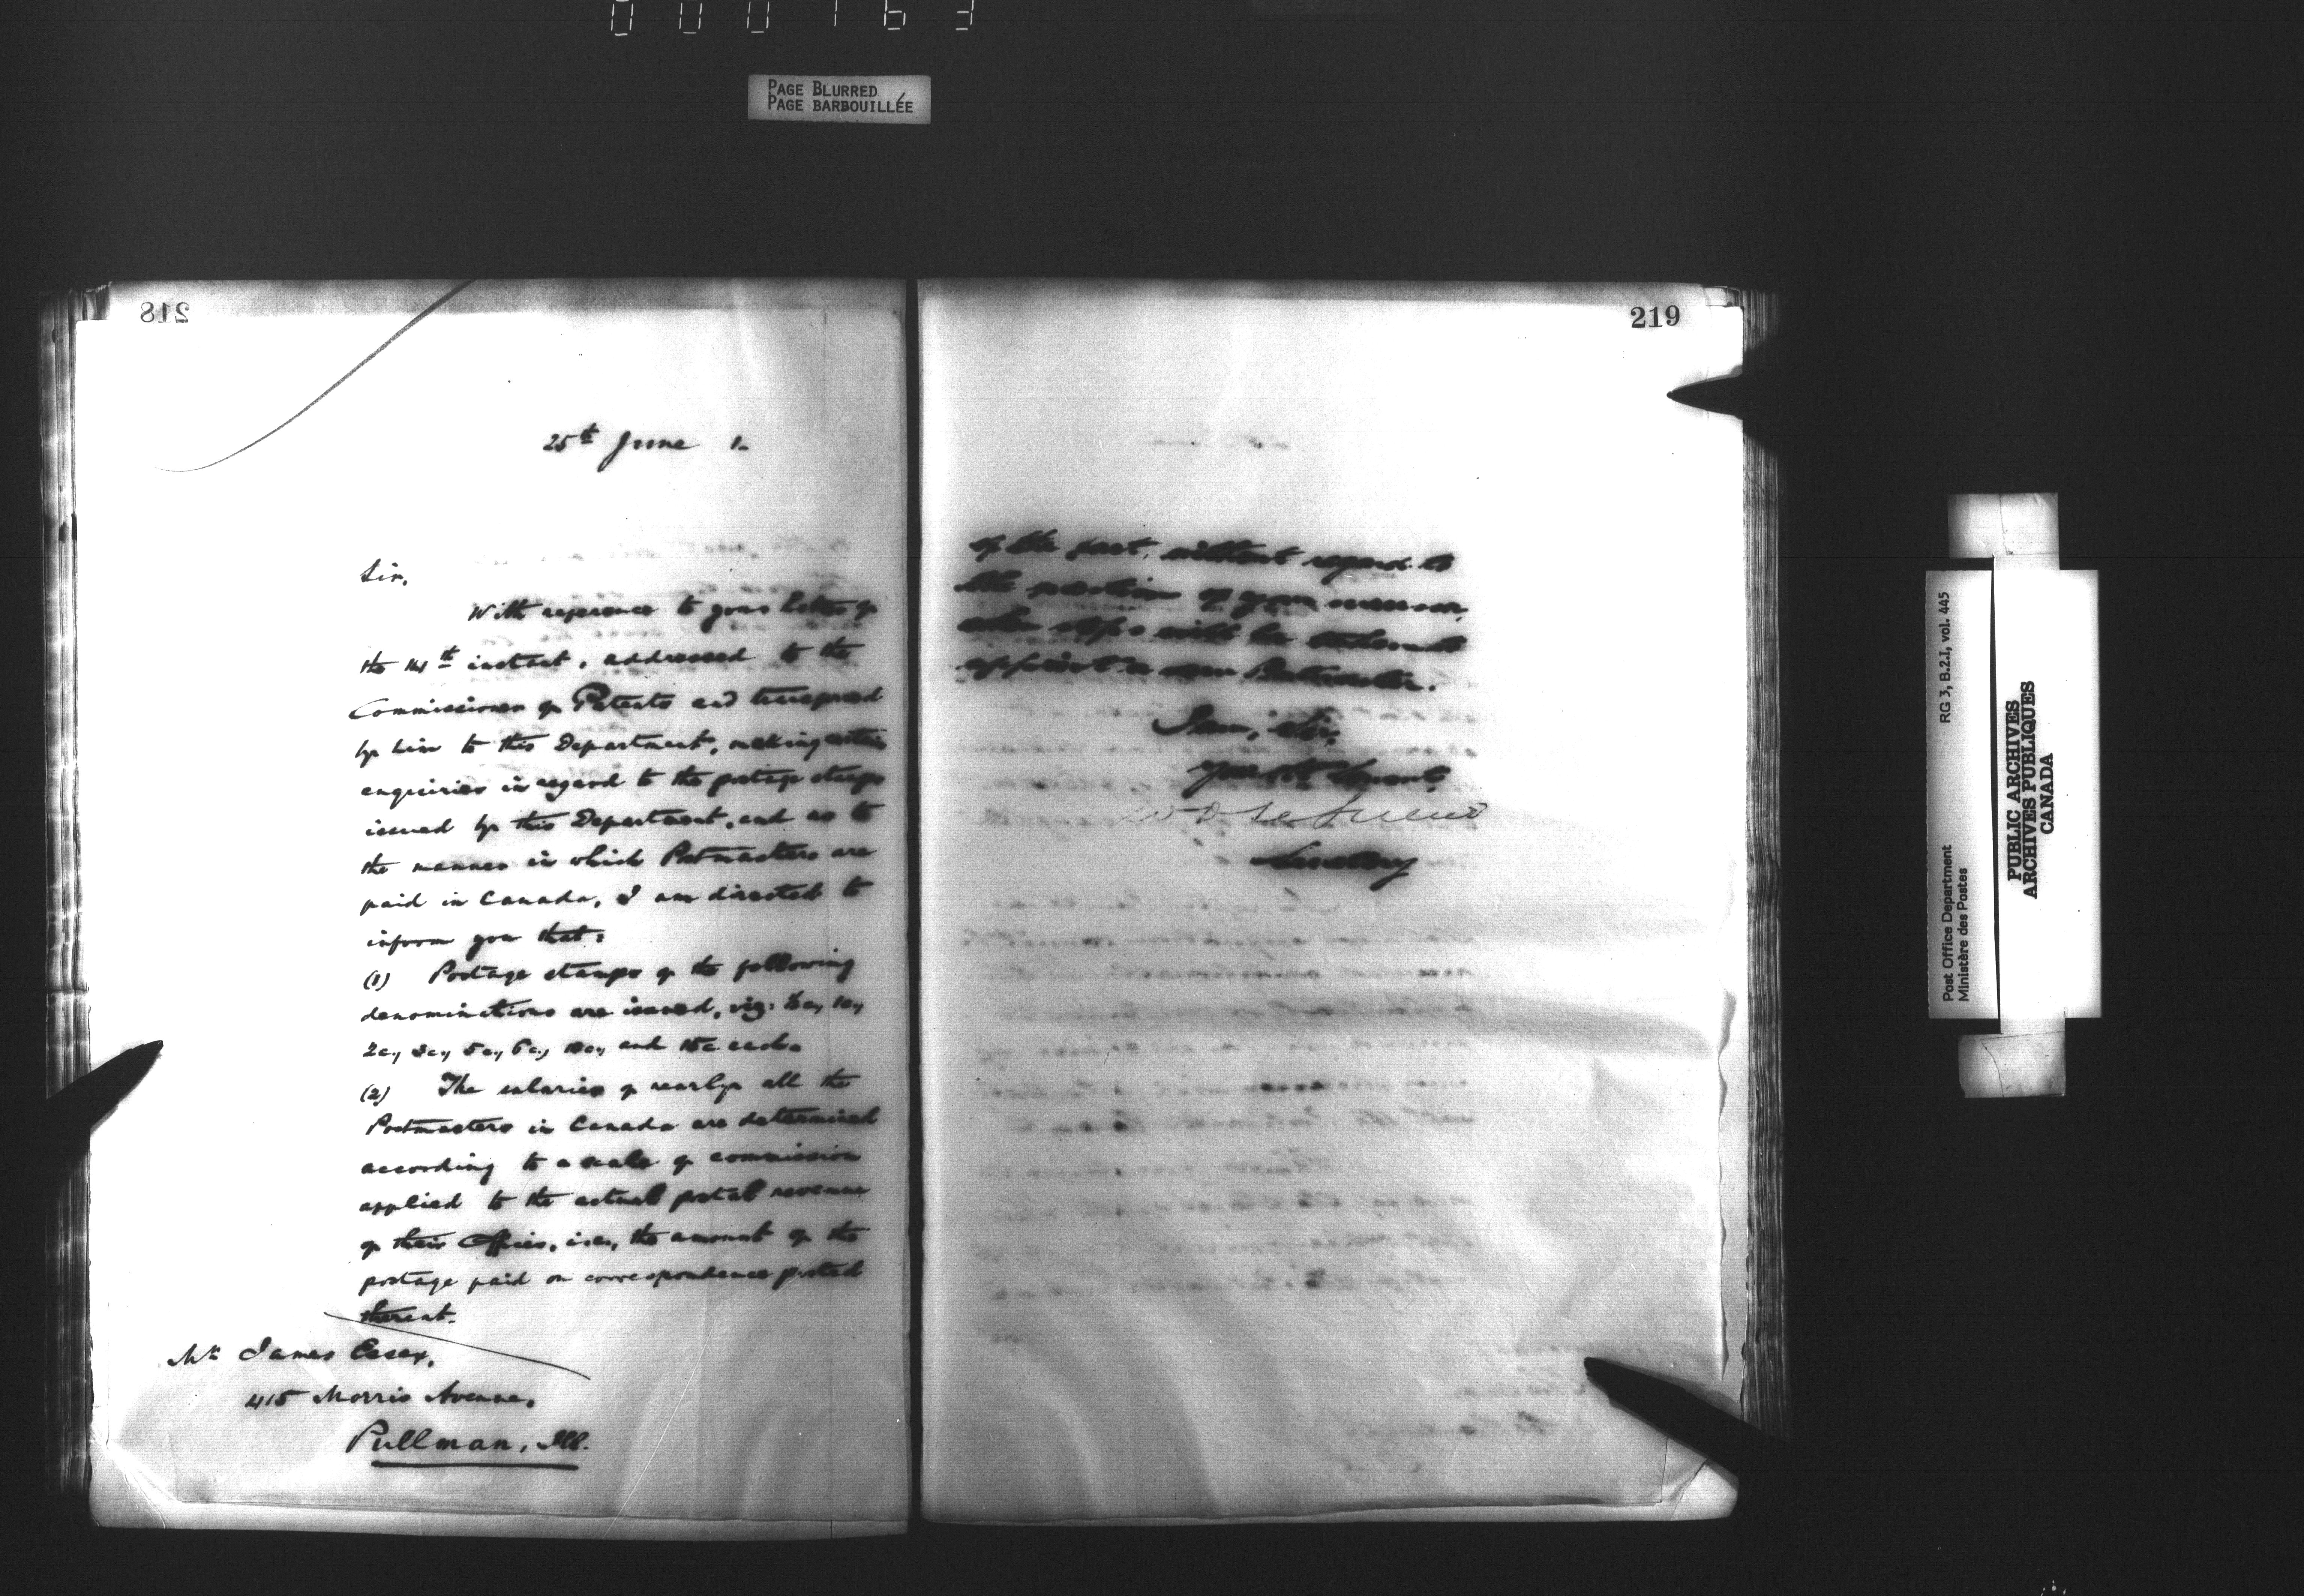 000163
PAGE BLURRED
PAGE BARBOUILLÉE
218
25th June 1-
Sir,
With reference to your letter of
the 14th instant, addressed to the
Commissioner of Patents and transferred
by him to this Department, making certain
enquiries in regard to the postage stamps
issued by this Department, and as to
the manner in which Postmasters are
paid in Canada, I am directed to
inform you that:
(1) Postage stamps of the following
denominations are issued, viz: ½c, 1c,
2c, 3c, 5c, 6c, 10c, and 15c each.
(2) The salaries of nearly all the
Postmasters in Canada are determined
according to a scale of commission
applied to the actual postal revenue
of their Offices, i.e., the amount of the
postage paid on correspondence posted
thereat.
Mr James Essex,
415 Morris Avenue,
Pullman, Ill.
219
of the fact, without regard to
the of your
steps will be taken to
appoint a new Postmaster.
I am, Sir,
Your Obt Servant,
Secretary
Post Office Department
Ministère des Postes
RG 3, B.2.I, vol. 445
PUBLIC ARCHIVES
ARCHIVES PUBLIQUES
CANADA